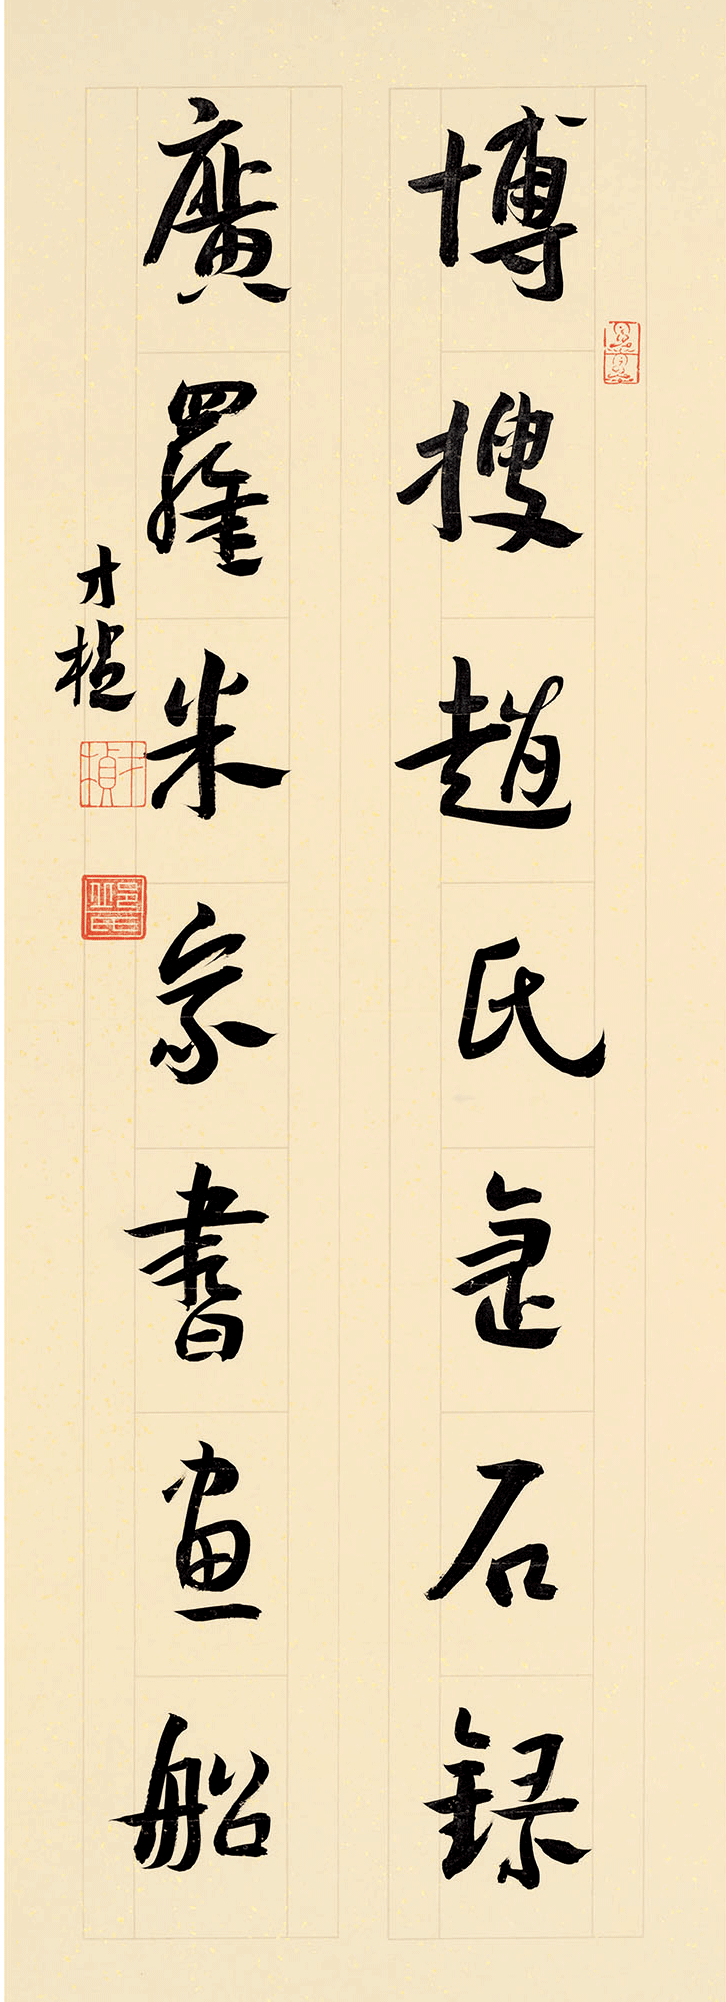 博搜趙氏石錄
廣羅米家書畫船
才楨
才楨